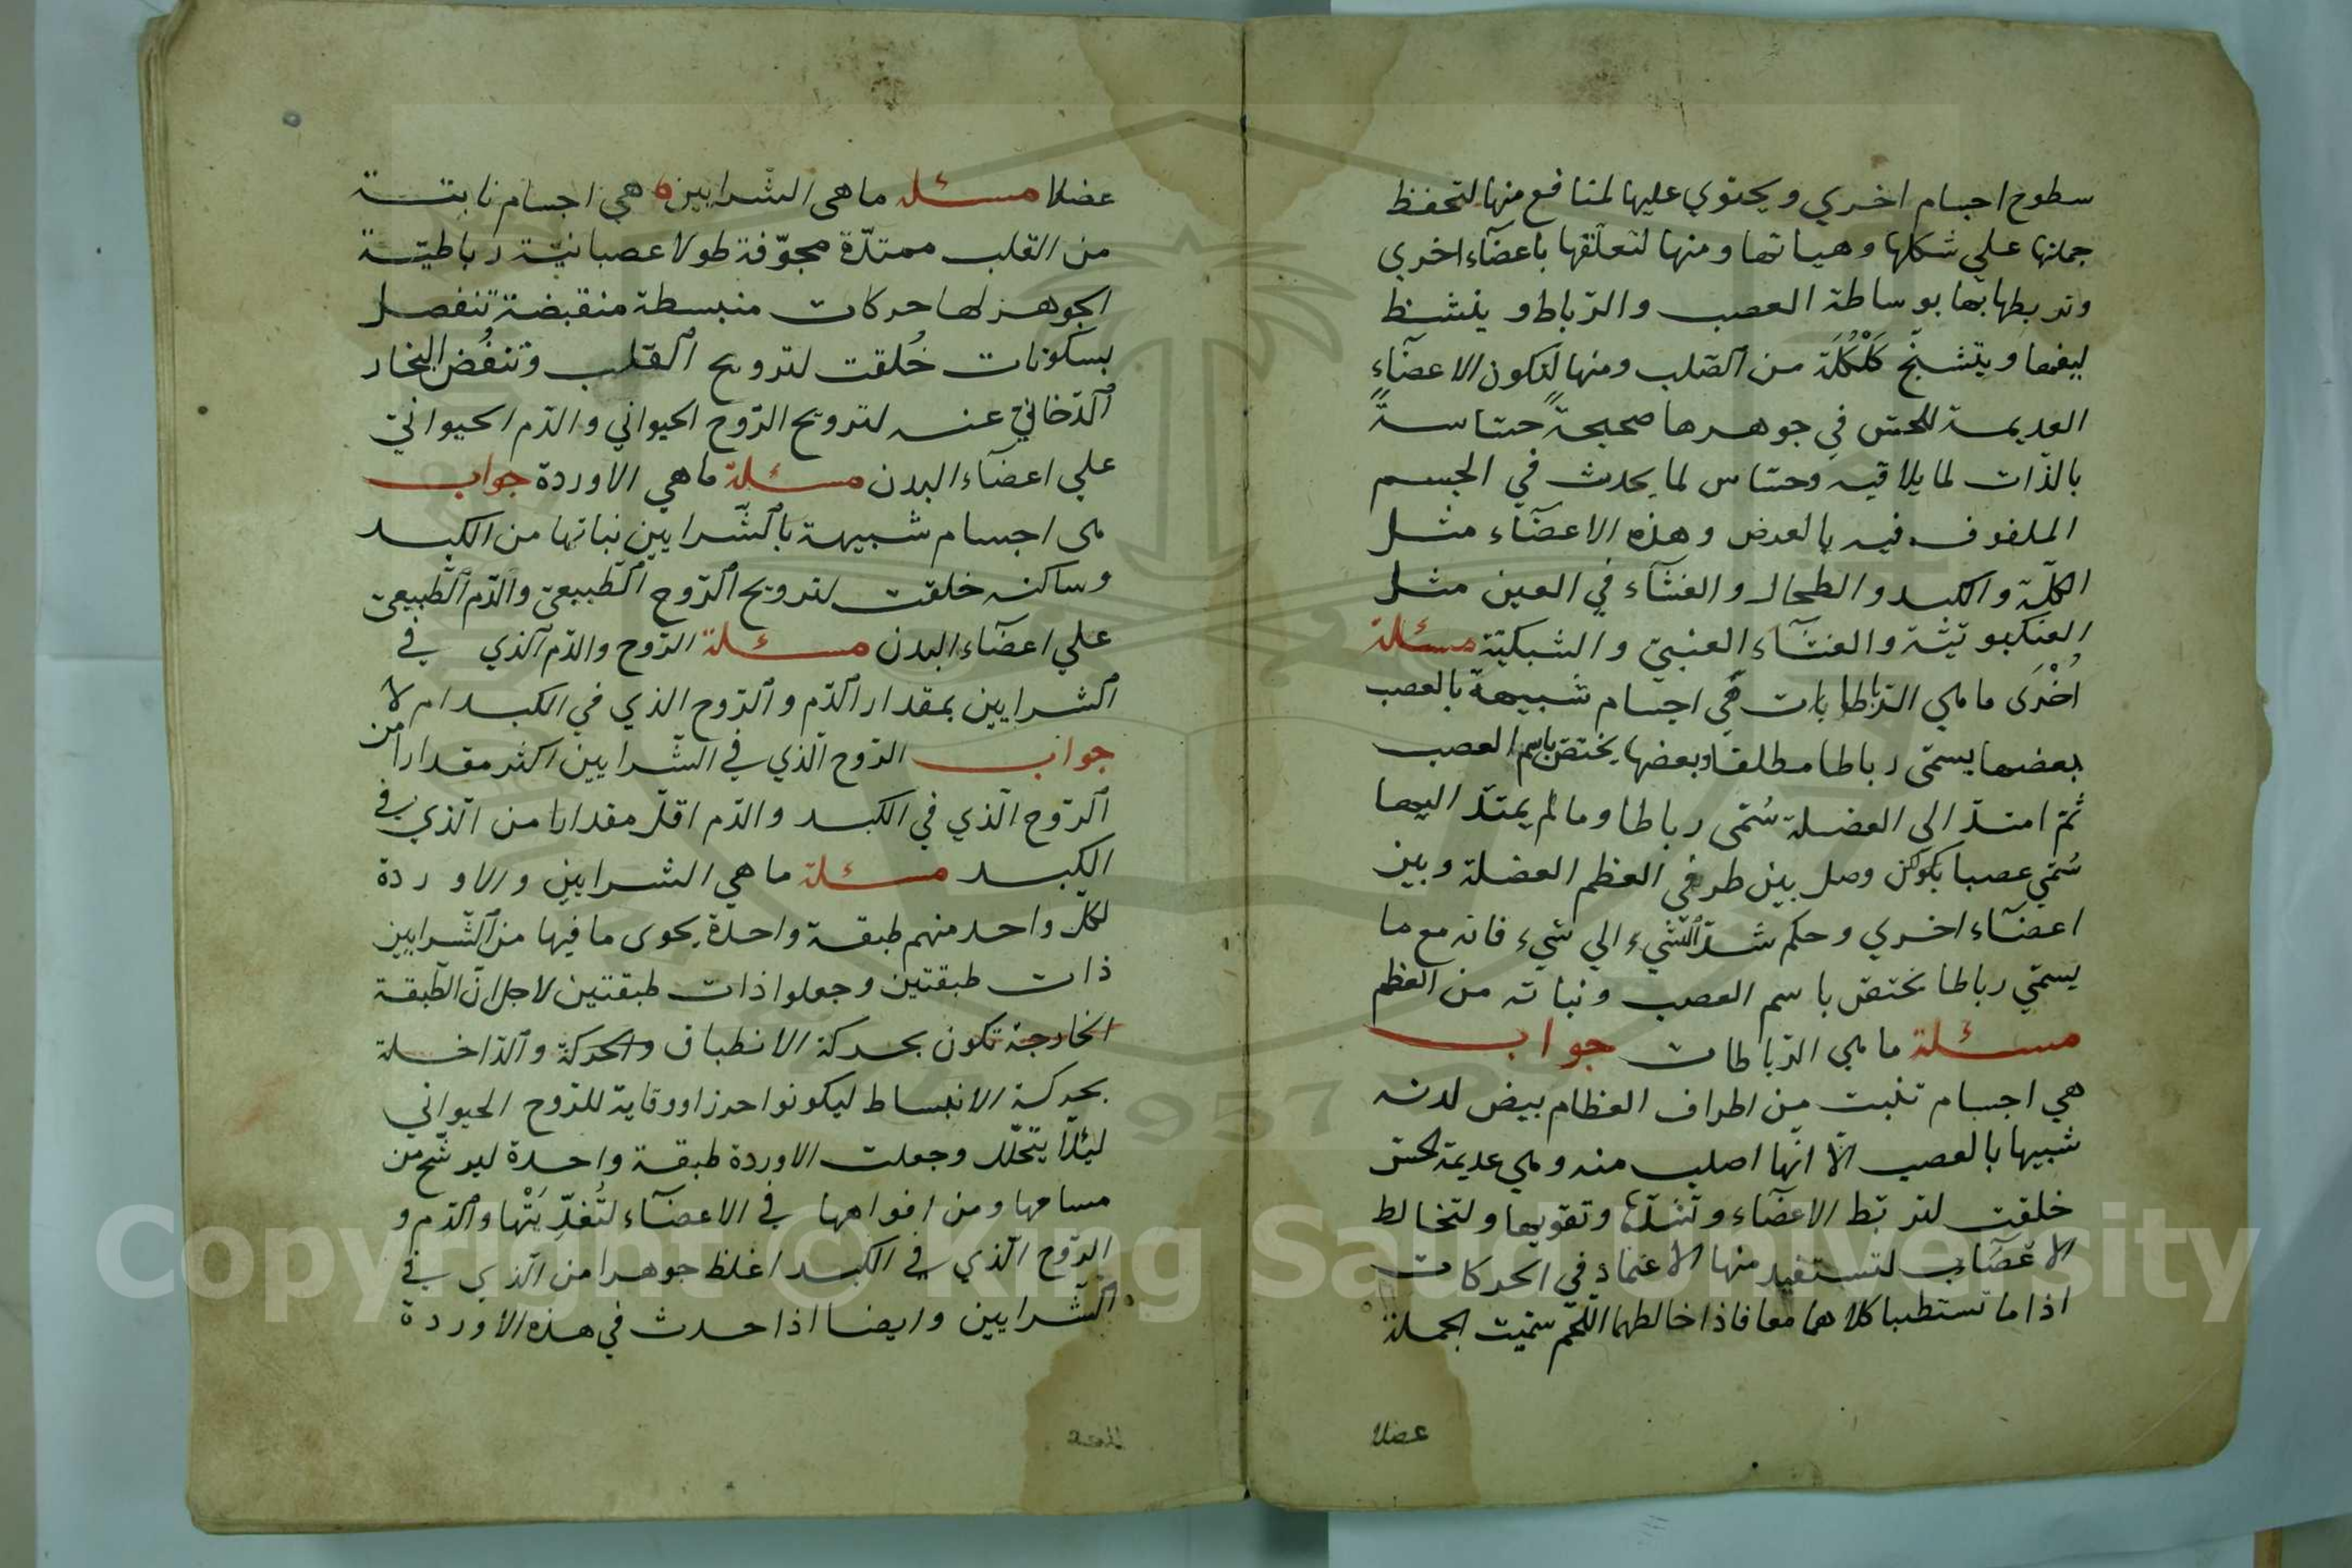 سطوح اجسام اخري ويحتوي عليها لمنافع منها لتحفظ
جملتها علي شكلها وهياتها ومنها لتعلّقها باعضآء اخري
وتربطها بها بوساطة العصب والرّباط و ينشظ
ليفها ويتشبّح من الصّلب ومنها لتكون الاعضآء
العديمة للحسّ في جوهرها صحيحةً حسّاسةً
بالذّات لما يلاقيه وحسّاس لما يحدث في الجسم
الملفوف فيه بالعرض وهذه الاعضآء مثل
الكلية والكبد والطحال والغشآء في العين مثل
العنكبوتيّة والغشآء العنبيّ والشبكيّة مسئلة
اُخْرَى ما هي الرّباطات هي اجسام شبيهة بالعصب
بعضها يسمّى رباطا مطلقا وبعضها يختصّ باسم العصب
ثمّ امتدّ الى العضلة سُمّى رباطا وما لم يمتدّ اليها
سُمّي عصبا وصل بين طرفي العظم العضلة وبين
اعضآء اخري وحكم شدّ الشّيء الي شيء فانه مع ما
يسمّي رباطا يختصّ باسم العصب ونباته من العظم
مسئلة ما هي الرّباطات جواب
هي اجسام تنبت من اطراف العظام بيض لدنه
شبيها بالعصب الّا انّها اصلب منه وهي عديمة لحسّ
خلقت لتربّط الاعضآء وتشدّها وتقويها ولتخالط
الاعصاب لتستفيد منها الاعتماد في الحركات
اذا ما تستطبا كلاهما معا فاذا خالطهما اللّحم سمّيت الجملة
عضلا
عضلا مسئله ما هى الشّرايين هي اجسام نابتة
من القلب ممتدّة مجوّفة طولا عصبانيّة رباطيّة
الجوهر لها حركات منبسطة منقبضة تنفصل
بسكونات خُلقت لترويح القلب وتنفُض البخار
الدّخانيّ عنه لترويح الرّوح الحيواني والدّم الحيوانيّ
علي اعضآء البدن مسئلة ما هي الاوردة جواب
هى اجسام شبيهة بالشّرايين نباتها من الكبد
وساكنه خلقت لترويح الرّوح الطّبيعيّ والدّم الطّبيعيّ
علي اعضآء البدن مسئلة الرّوح والدّم الّذي في
الشرايين بمقدار الدّم والرّوح الذي في الكبد ام لا
جواب الرّوح الّذي في الشّرايين اكثر مقدارا من
الرّوح الّذي في الكبد والدّم اقلّ مقدارا من الّذي في
الكبد مسئلة ما هي الشرايين والاوردة
لكلّ واحد منهم طبقة واحدة يحوى ما فيها من الشّرايين
ذات طبقتين وجعلوا ذات طبقتين لاجل انّ الطّبقة
الخارجة تكون بحركة الانطباق والحركة والدّاخلة
بحركة الانبساط ليكونوا حرزا ووقاية للرّوح الحيواني
ليئلّا يتحلّل وجعلت الاوردة طبقة واحدة ليرشّح من
مسامها ومن افواهها في الاعضآء والدّم و
الرّوح الّذي في الكبد اغلظ جوهرا من الّذي في
الشّرايين وايضا اذا حدث في هذه الاوردة
Copyright © King Saud University
1957